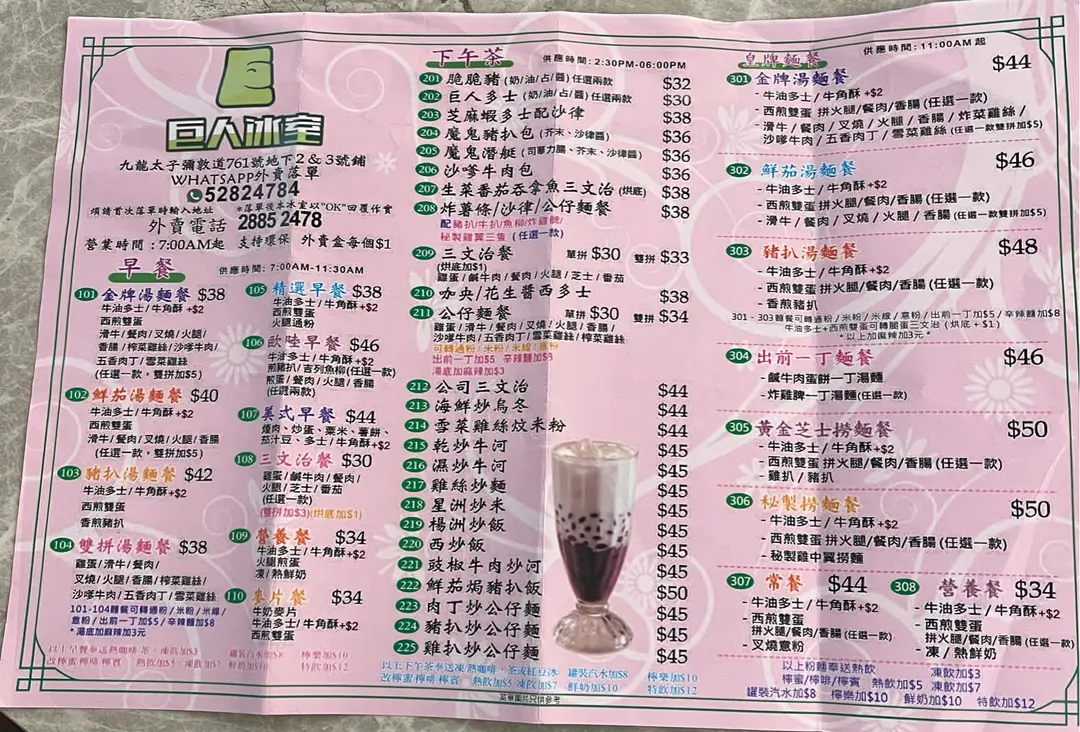 巨人冰室
九龍太子彌敦道761號地下2&3號鋪
WHATSAPP外賣落單
52824784
煩請首次落單時輸入地址 *落單後本冰室以"OK"回覆作實
外賣電話 2885 2478
營業時間:7:00AM起 支持環保 外賣盒每個$1
早餐 供應時間: 7:00AM-11:30AM
101 金牌湯麵餐 $38
牛油多士/牛角酥+$2
西煎雙蛋
滑牛/餐肉/叉燒/火腿/
香腸/榨菜雞絲/沙嗲牛肉/
五香肉丁/雪菜雞絲
(任選一款,雙拼加$5)
102 鮮茄湯麵餐 $40
牛油多士/牛角酥+$2
西煎雙蛋
滑牛/餐肉/叉燒/火腿/香腸
(任選一款,雙拼加$5)
103 豬扒湯麵餐 $42
牛油多士/牛角酥+$2
西煎雙蛋
香煎豬扒
104 雙拼湯麵餐 $38
雞蛋/滑牛/餐肉/
叉燒/火腿/香腸/榨菜雞絲/
沙嗲牛肉/五香肉丁/雪菜雞絲
101-104麵餐可轉通粉/米粉/米線/
意粉/出前一丁加$5/辛辣麵加$8
*湯底加麻辣加3元
105 精選早餐 $38
牛油多士/牛角酥+$2
西煎雙蛋
火腿通粉
106 歐陸早餐 $46
牛油多士/牛角酥+$2
煎豬扒/吉列魚柳(任選一款)
煎蛋/餐肉/火腿/香腸
(任選兩款)
107 美式早餐 $44
煙肉、炒蛋、粟米、薯餅、
茄汁豆、多士/牛角酥+$2
108 三文治餐 $30
雞蛋/鹹牛肉/餐肉/
火腿/芝士/番茄
(任選一款)
(雙拼加$3)(烘底加$1)
109 營養餐 $34
牛油多士/牛角酥+$2
火腿煎蛋
凍/熱鮮奶
110 麥片餐 $34
牛奶麥片
牛油多士/牛角酥+$2
西煎雙蛋
以上早餐奉送熱咖啡.茶、凍飲加$3 罐裝汽水加$8 檸樂加$10
改檸蜜/檸啡/檸賓 熱飲加$5、凍飲加$7 鮮奶加$10 特飲加$12
下午茶 供應時間: 2:30PM-06:00PM
201 脆脆豬(奶/油/占/醬)任選兩款 $32
202 巨人多士(奶/油/占/醬)任選兩款 $30
203 芝麻蝦多士配沙律 $38
204 魔鬼豬扒包(芥末、沙律醬) $36
205 魔鬼潛艇(司華力腸、芥末、沙律醬) $36
206 沙嗲牛肉包 $36
207 生菜番茄吞拿魚三文治(烘底) $38
208 炸薯條/沙律/公仔麵餐 $38
配豬扒/牛扒/魚柳/炸雞髀/
秘製雞翼三隻(任選一款)
209 三文治餐 單拼$30 雙拼$33
(烘底加$1)
雞蛋/鹹牛肉/餐肉/火腿/芝士/番茄
210 咖央/花生醬西多士 $38
211 公仔麵餐 單拼$30 雙拼$34
雞蛋/滑牛/餐肉/叉燒/火腿/香腸/
沙嗲牛肉/五香肉丁/雪菜雞絲/榨菜雞絲
可轉通粉/米粉/米線/意粉
出前一丁加$5 辛辣麵加$8
湯底加麻辣加$3
212 公司三文治 $44
213 海鮮炒烏冬 $44
214 雪菜雞絲炆米粉 $44
215 乾炒牛河 $45
216 濕炒牛河 $45
217 雞絲炒麵 $45
218 星洲炒米 $45
219 楊洲炒飯 $45
220 西炒飯 $45
221 豉椒牛肉炒河 $45
222 鮮茄焗豬扒飯 $50
223 肉丁炒公仔麵 $45
224 豬扒炒公仔麵 $45
225 雞扒炒公仔麵 $45
以上下午茶奉送凍/熱咖啡、茶或紅豆冰 罐裝汽水加$8 檸樂加$10
改檸蜜/檸啡/檸賓 熱飲加$5 凍飲加$7 鮮奶加$10 特飲加$12
菜單圖片只供參考
皇牌麵餐 供應時間: 11:00AM 起
301 金牌湯麵餐 $44
- 牛油多士/牛角酥+$2
- 西煎雙蛋 拼火腿/餐肉/香腸(任選一款)
- 滑牛/餐肉/叉燒/火腿/香腸/炸菜雞絲/
沙嗲牛肉/五香肉丁/雪菜雞絲(任選一款雙拼加$5)
302 鮮茄湯麵餐 $46
- 牛油多士/牛角酥+$2
- 西煎雙蛋 拼火腿/餐肉/香腸(任選一款)
- 滑牛/餐肉/叉燒/火腿/香腸(任選一款雙拼加$5)
303 豬扒湯麵餐 $48
- 牛油多士/牛角酥+$2
- 西煎雙蛋 拼火腿/餐肉/香腸(任選一款)
- 香煎豬扒
301 - 303麵餐可轉通粉/米粉/米線/意粉/出前一丁加$5/辛辣麵加$8
牛油多士+西煎雙蛋可轉腿蛋三文治(烘底+$1)
*以上加麻辣加3元*
304 出前一丁麵餐 $46
- 鹹牛肉蛋餅一丁湯麵
- 炸雞髀一丁湯麵(任選一款)
305 黃金芝士撈麵餐 $50
- 牛油多士/牛角酥+$2
- 西煎雙蛋 拼火腿/餐肉/香腸(任選一款)
- 雞扒/豬扒
306 秘製撈麵餐 $50
- 牛油多士/牛角酥+$2
- 西煎雙蛋 拼火腿/餐肉/香腸(任選一款)
- 秘製雞中翼撈麵
307 常餐 $44
- 牛油多士/牛角酥+$2
- 西煎雙蛋
拼火腿/餐肉/香腸(任選一款)
- 叉燒意粉
308 營養餐 $34
- 牛油多士/牛角酥+$2
- 西煎雙蛋
拼火腿/餐肉/香腸(任選一款)
- 凍/熱鮮奶
以上粉麵奉送熱飲 凍飲加$3
檸蜜/檸啡/檸賓 熱飲加$5 凍飲加$7
罐裝汽水加$8 檸樂加$10 鮮奶加$10 特飲加$12